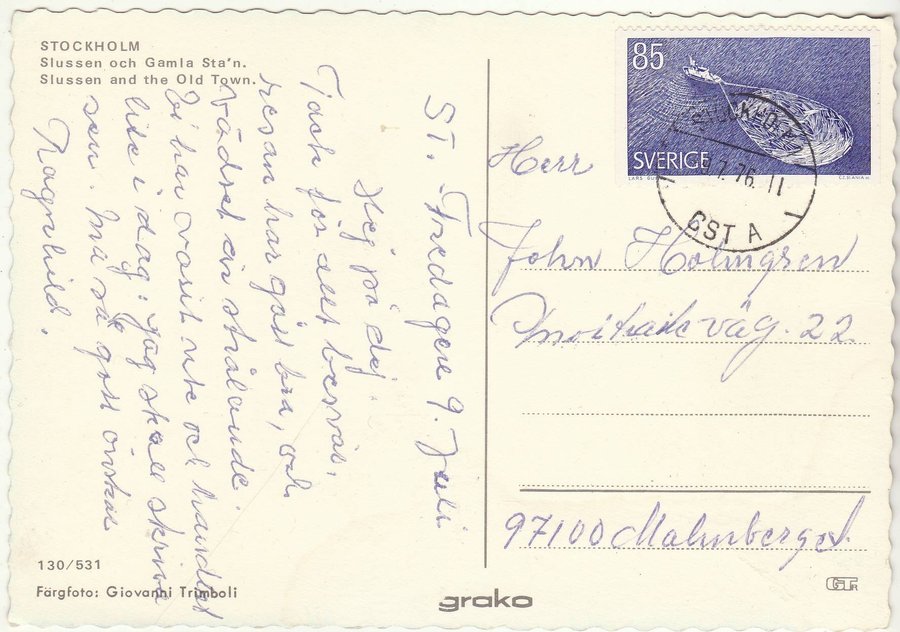 STOCKHOLM
Slussen och Gamla Sta'n.
Slussen and the Old Town.
ST. Fredagen 9. Juli
Hej på dej
Tack för allt besvär,
resan har gått bra, och
vädret är strålande.
Vi har varit ute och handlat
lite i dag. Jag skall skriva
sen. Må så gott önskar
Ragnhild.
130/531
Färgfoto: Giovanni Trimboli
grako
85
SVERIGE
CZ.SLANIA
STOCKHOLM
9.7.76.11
ÖST A
1
Herr
John Holmgren
väg. 22
97100 Malmberget
GT